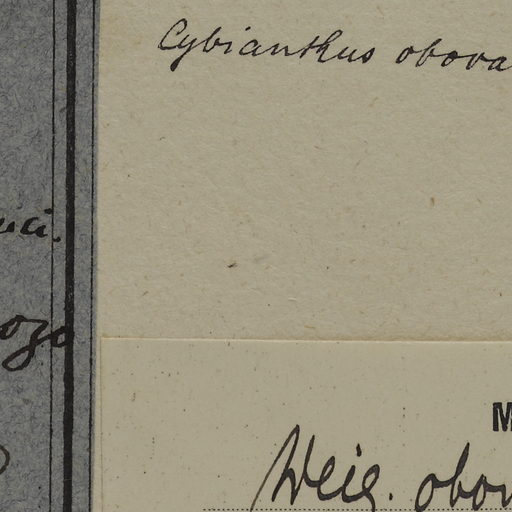 Cybianthus obova
uci.
ozo
M
Weig. obov